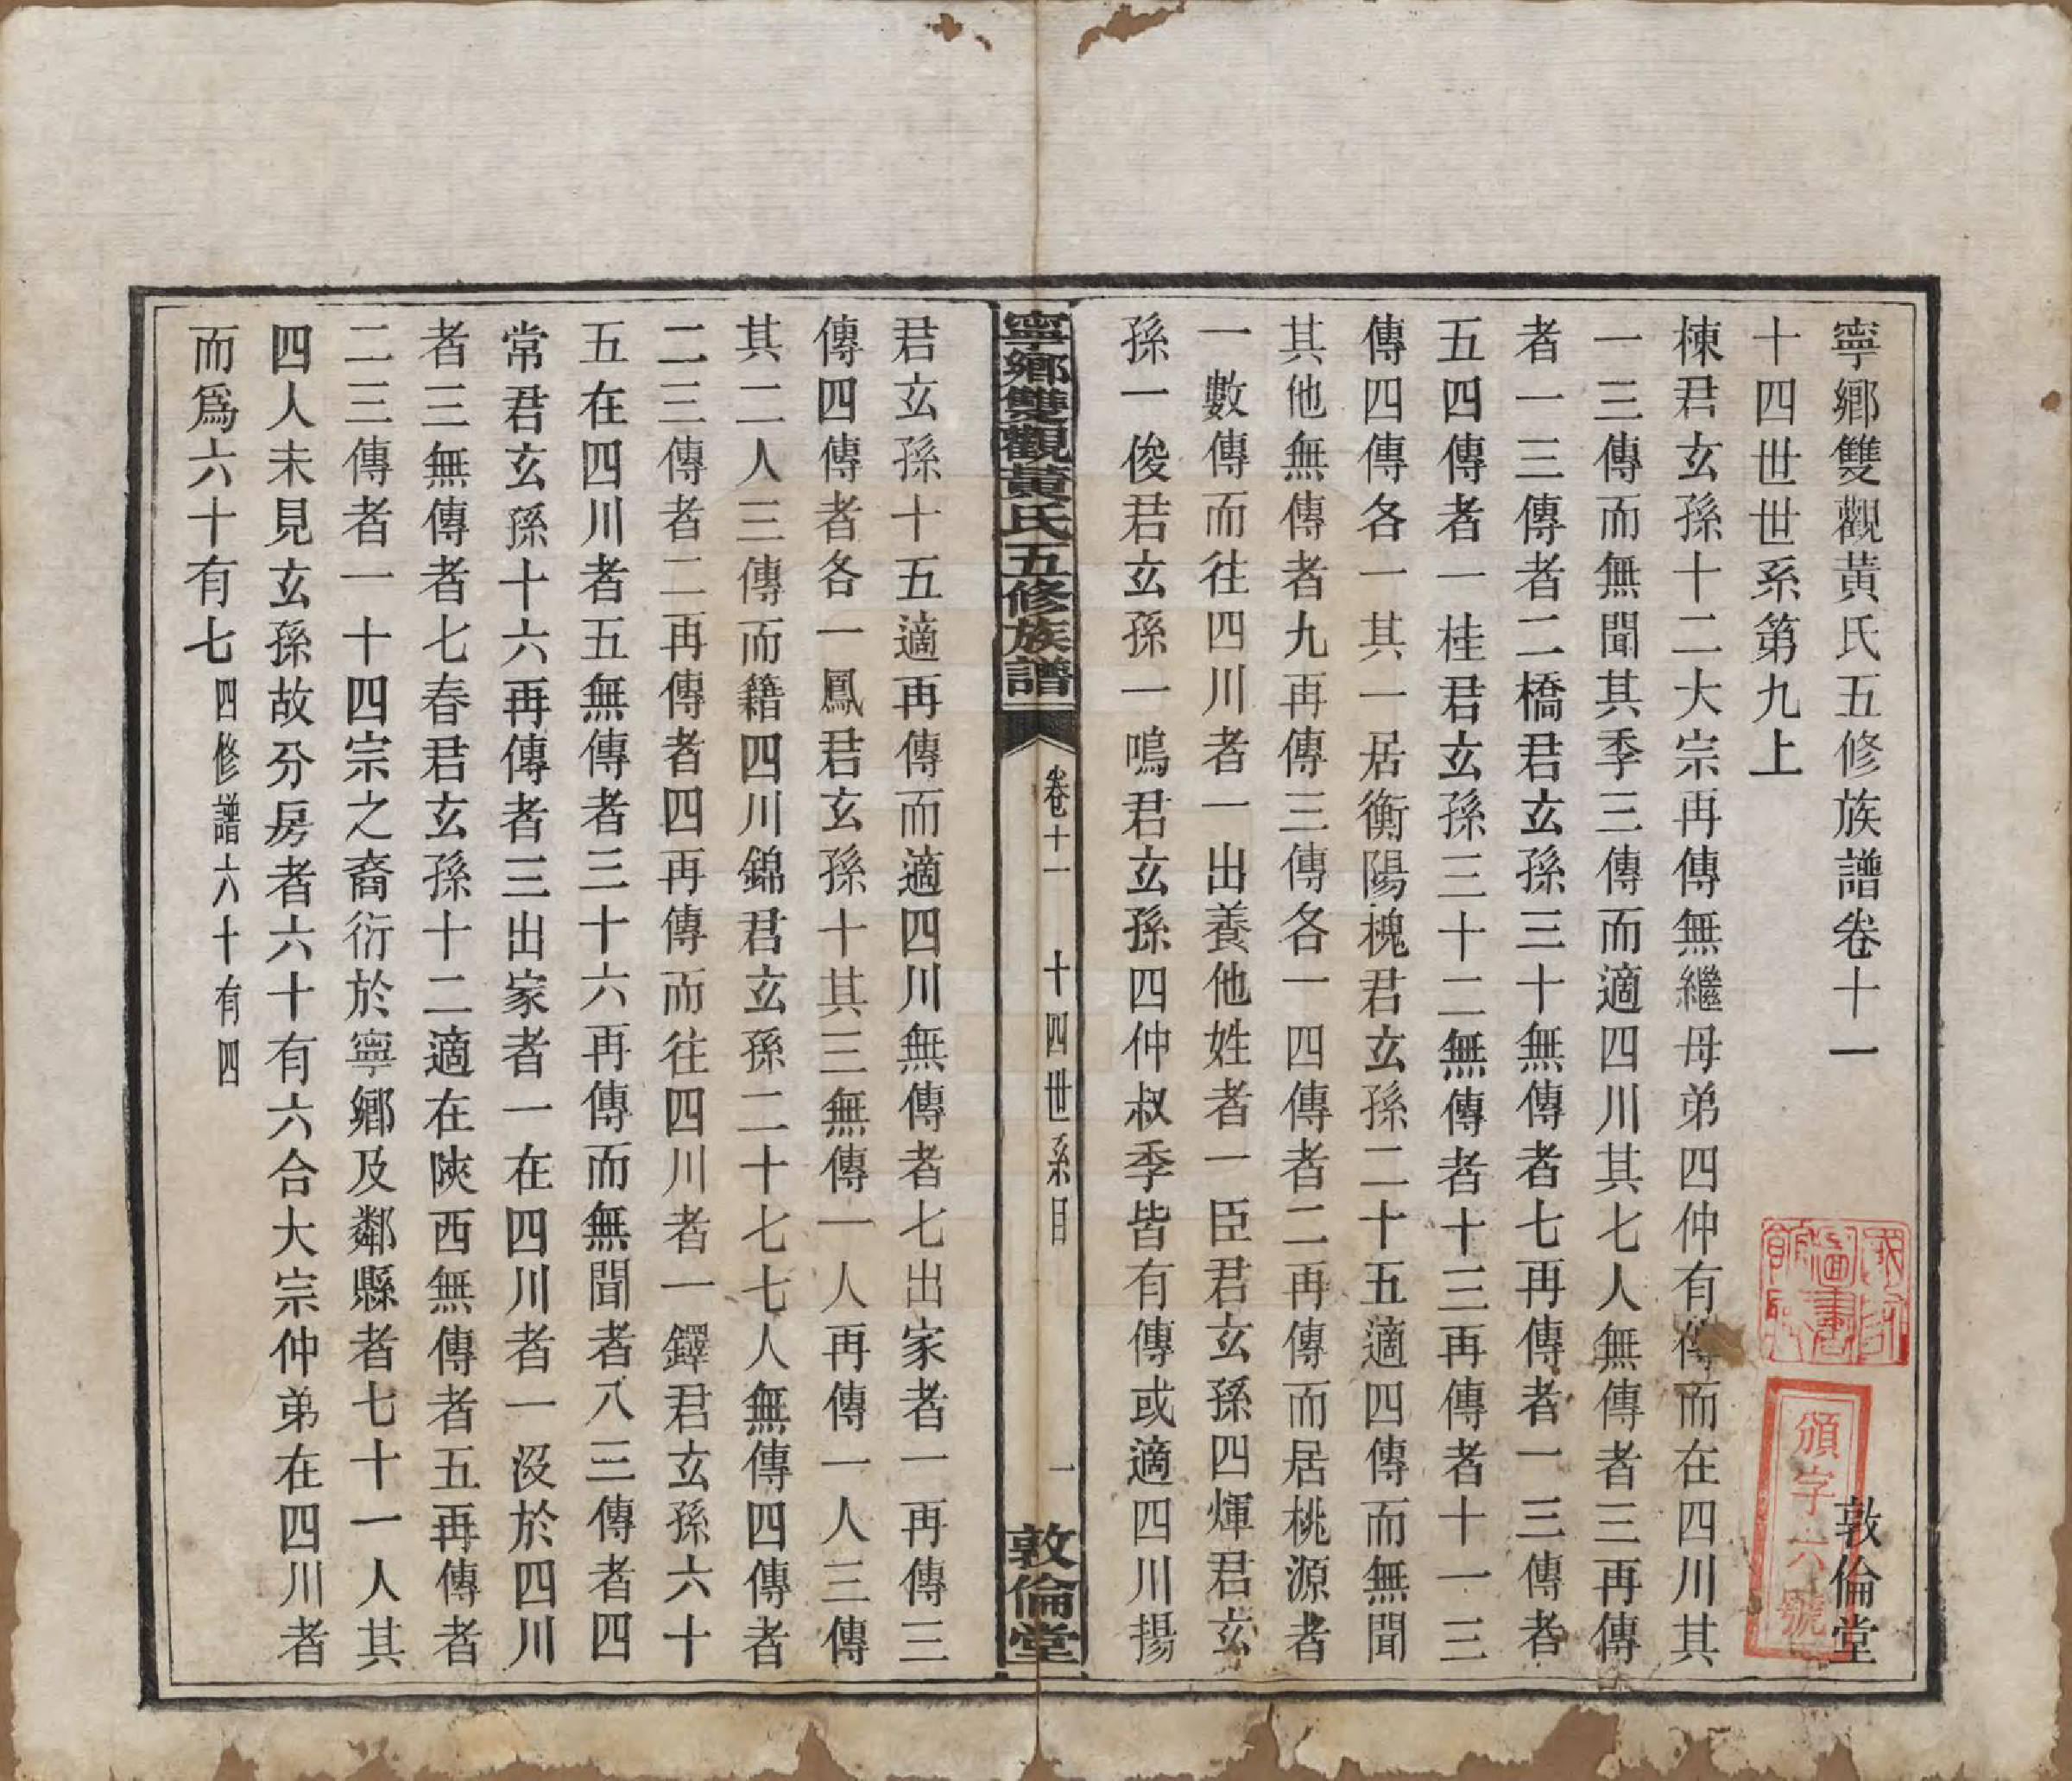 寧鄉雙觀黃氏五修族譜卷十一
敦倫堂
十四世世系第九上
棟君玄孫十二大宗再傳無繼母弟四仲有傳而在四川其
一三傳而無聞其季三傳而適四川其七人無傳者三再傳
者一三傳者二橋君玄孫三十無傳者七再傳者一三傳者
五四傳者一桂君玄孫三十二無傳者十三再傳者十一三
傳四傳各一其一居衡陽槐君玄孫二十五適四傳而無聞
其他無傳者九再傳三傳各一四傳者二再傳而居桃源者
一數傳而往四川者一出養他姓者一臣君玄孫四煇君玄
孫一俊君玄孫一鳴君玄孫四仲叔季皆有傳或適四川揚
寧鄉雙觀黃氏五修族譜
卷十一 十四世系目
一
敦倫堂
君玄孫十五適再傳而適四川無傳者七出家者一再傳三
傳四傳者各一鳳君玄孫十其三無傳一人再傳一人三傳
其二人三傳而籍四川錦君玄孫二十七七人無傳四傳者
二三傳者二再傳者四再傳而往四川者一鐸君玄孫六十
五在四川者五無傳者三十六再傳而無聞者八三傳者四
常君玄孫十六再傳者三出家者一在四川者一沒於四川
者三無傳者七春君玄孫十二適在陝西無傳者五再傳者
二三傳者一十四宗之裔衍於寧鄉及鄰縣者七十一人其
四人未見玄孫故分房者六十有六合大宗仲弟在四川者
而爲六十有七四修譜六十有四
國立北平圖書館藏
頒字六號